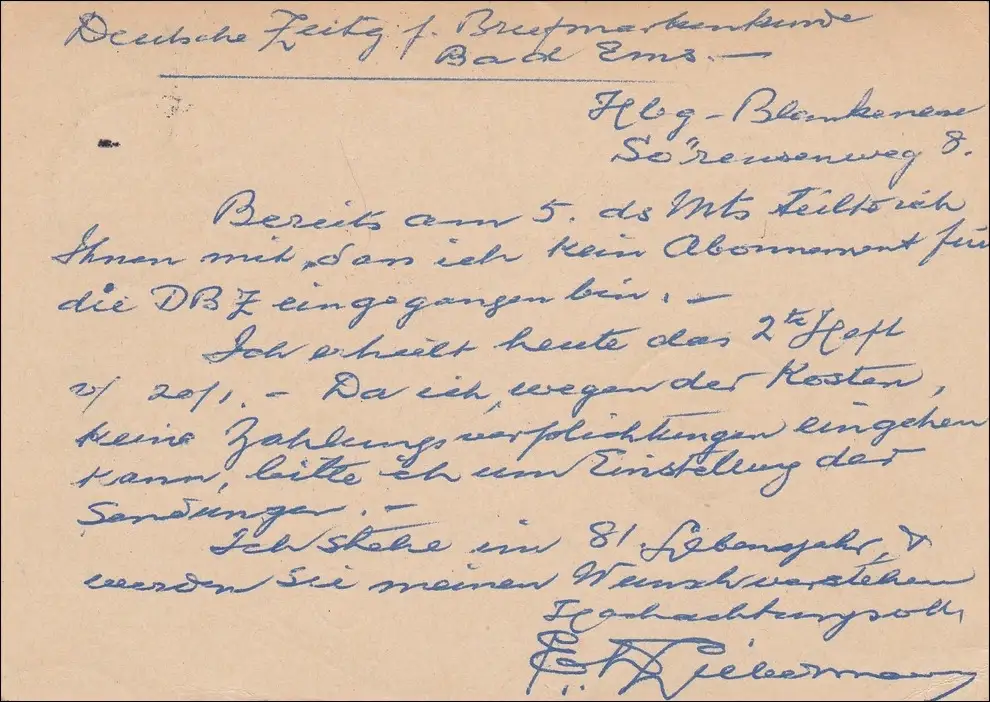 Deutsche Zeitg f. Briefmarkenkunde
Bad Ems. —
Hbg - Blankenese
Sörensenweg 8.
Bereits am 5. ds Mts teilte ich
Ihnen mit, dass ich kein Abonnement für
die DBZ eingegangen bin. —
Ich erhielt heute das 2te Heft
v/ 20/1. — Da ich, wegen der Kosten,
keine Zahlungsverpflichtungen eingehen
kann, bitte ich um Einstellung der
Sendungen. —
Ich stehe im 81. Lebensjahr, &
werden Sie meinen Wunsch verstehen
Hochachtungsvoll,
Liebermann